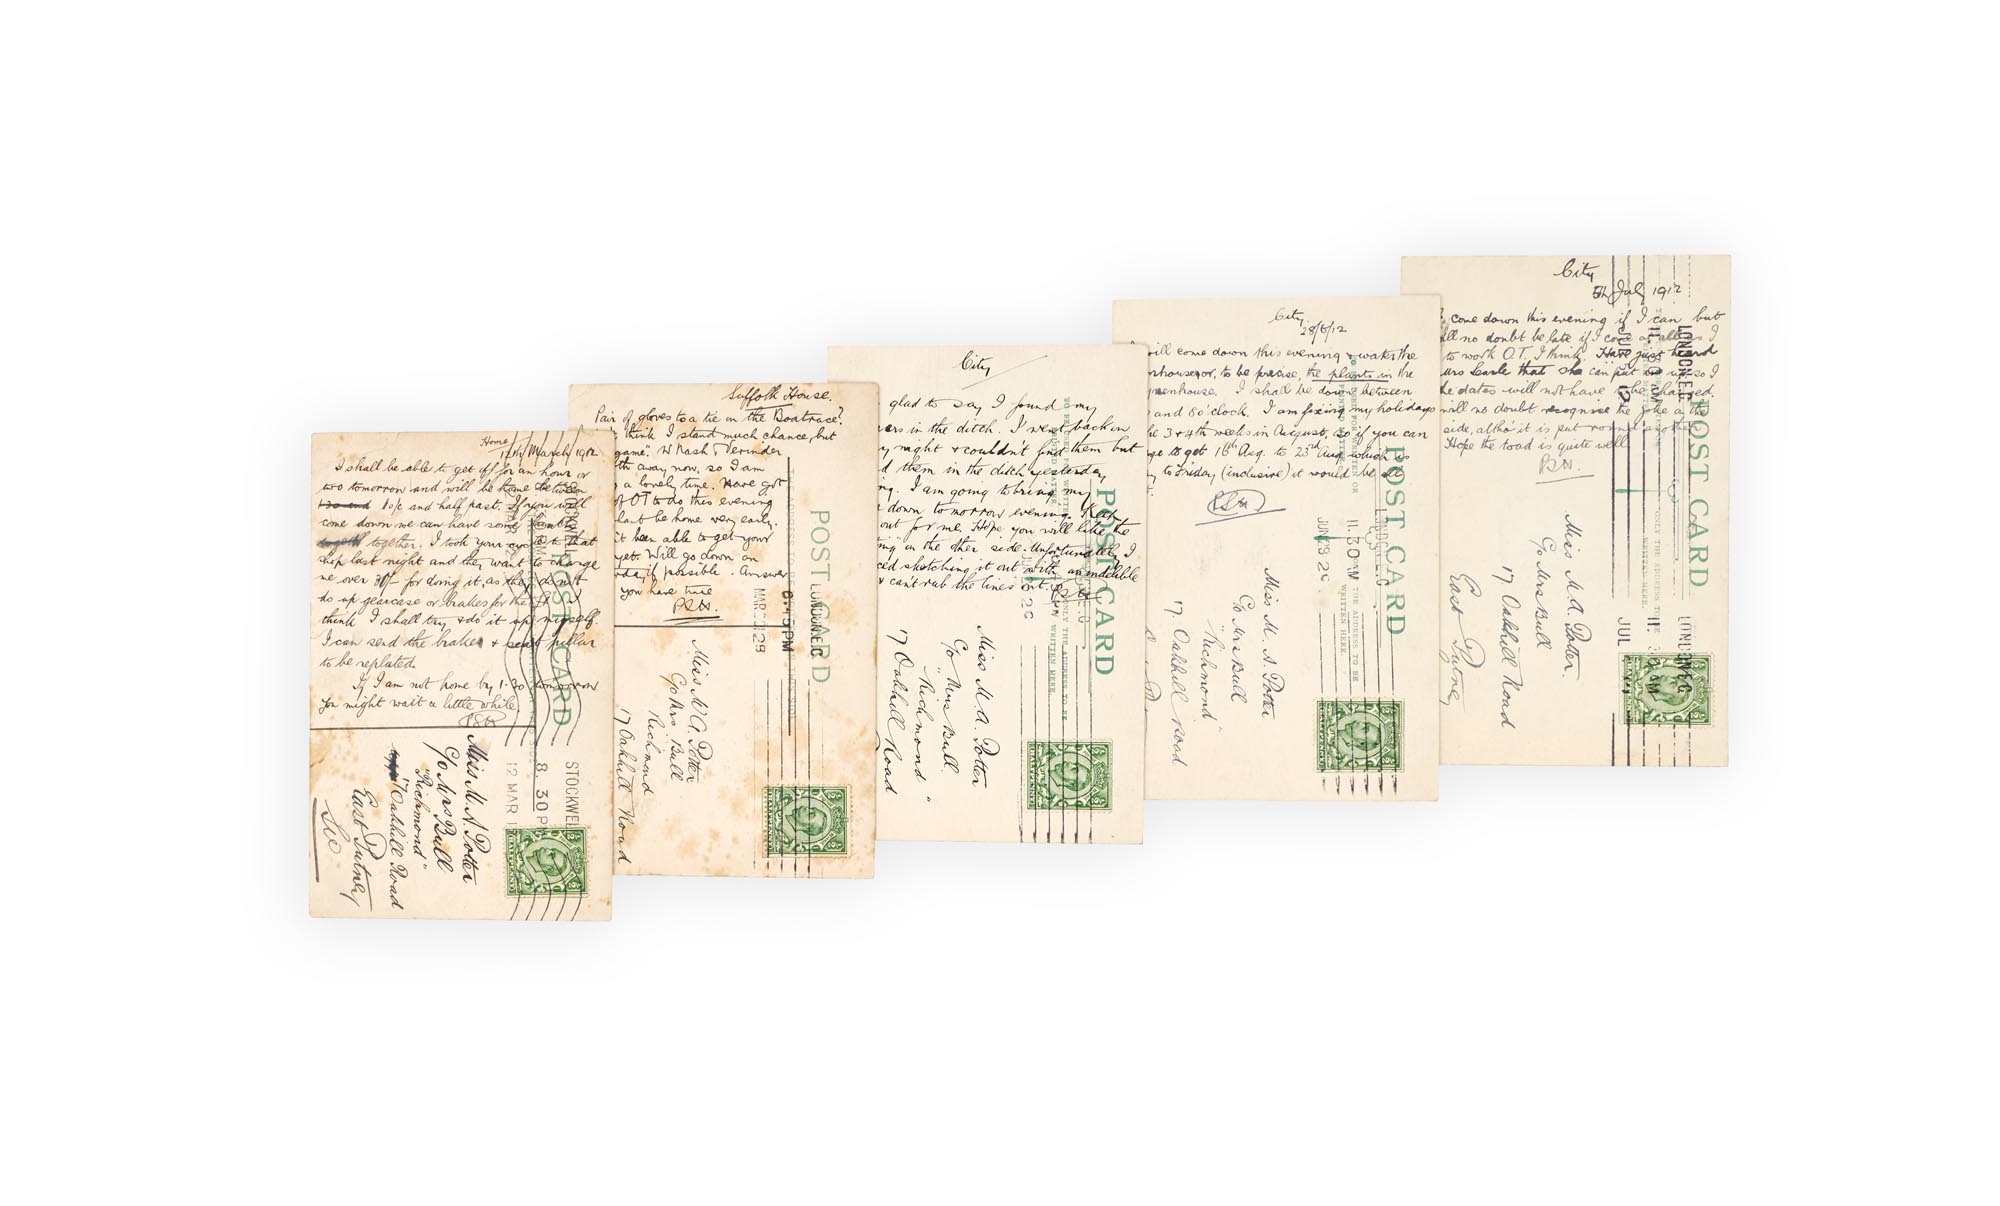 Home
12th March 1912
I shall be able to get off for an hour or
two tomorrow and will be home between
1o/c and half past. If you will
come down we can have some
together. I took your cycle to that
shop last night and they want to charge
me over 30/- for doing it, as they do not
do up gearcase or brakes for the
think I shall try & do it up myself.
I can send the brakes & seat pillar
to be replated.
If I am not home by 1.30 tomorrow
you might wait a little while.
POST CARD
STOCKWELL
8.30PM
12 MAR
Miss M. A. Potter
C/o Mrs Bull
"Richmond"
17 Oakhill Road
East Putney
HALFPENNY
Suffolk House.
Pair of gloves to a tie on the Boatrace?
think I stand much chance, but
game". W Nash & Perinder
away now, so I am
a lonely time. Have got
of OT to do this evening
shan't be home very early.
been able to get your
yet. Will go down on
if possible. Answer
you have time
POST CARD
LONDON.E.C
6.45PM
MAR
Miss M. A. Potter
C/o Mrs. Bull
Richmond
17 Oakhill Road
HALFPENNY
City
glad to say I found my
in the ditch. I went back on
night & couldn't find them but
them in the ditch yesterday
I am going to bring my
down tomorrow evening. Keep
out for me. Hope you will like the
on the other side. Unfortunately I
sketching it out with an indelible
& can't rub the lines out.
POST CARD
WRITTEN HERE.
Miss M. A. Potter
C/o Mrs Bull
"Richmond"
17 Oakhill Road
HALFPENNY
City
28/6/12
will come down this evening & water the
or, to be precise, the plants in the
greenhouse. I shall be down between
and 8 o'clock. I am fixing my holidays
3rd & 4th weeks in August, so if you can
to get 16th Aug. to 23rd Aug which is
to Friday (inclusive) it would be
POST CARD
THE ADDRESS TO BE
WRITTEN HERE.
LONDON.E.C
11.30AM
JUN 28
Miss M. A. Potter
C/o Mrs Bull
"Richmond"
17. Oakhill Road
HALFPENNY
City
5th July 1912
come down this evening if I can but
no doubt be late if I come at all as I
to work O.T. I think. Have just heard
Mrs Searle that she can put us up so I
the dates will not have to be changed.
will no doubt recognise the joke on the
side, altho' it is put round another
Hope the toad is quite well
POST CARD
ONLY THE ADDRESS TO BE
WRITTEN HERE.
LONDON.E.C
11.30AM
JUL
Miss M. A. Potter.
C/o Mrs Bull
17 Oakhill Road
East Putney
HALFPENNY